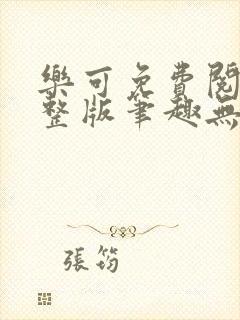 樂可免費閱
整版筆趣無
張筠